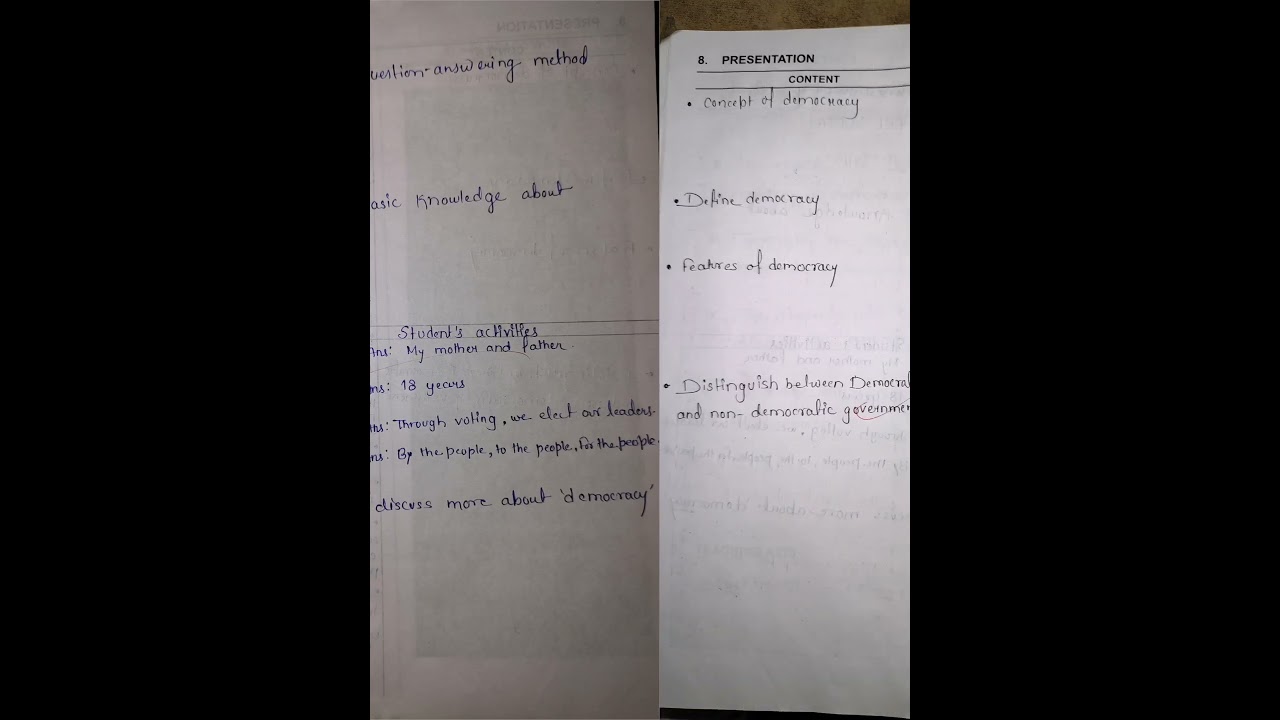 uestion-answering method
asic Knowledge about
Student's activities
Ans: My mother and father.
ns: 18 years
ns: Through voting, we elect our leaders.
ns: By the people, to the people, for the people.
discuss more about 'democracy'
8. PRESENTATION
CONTENT
• Concept of democracy
• Define democracy
• Features of democracy
• Distinguish between Democrat
and non-democratic governmen